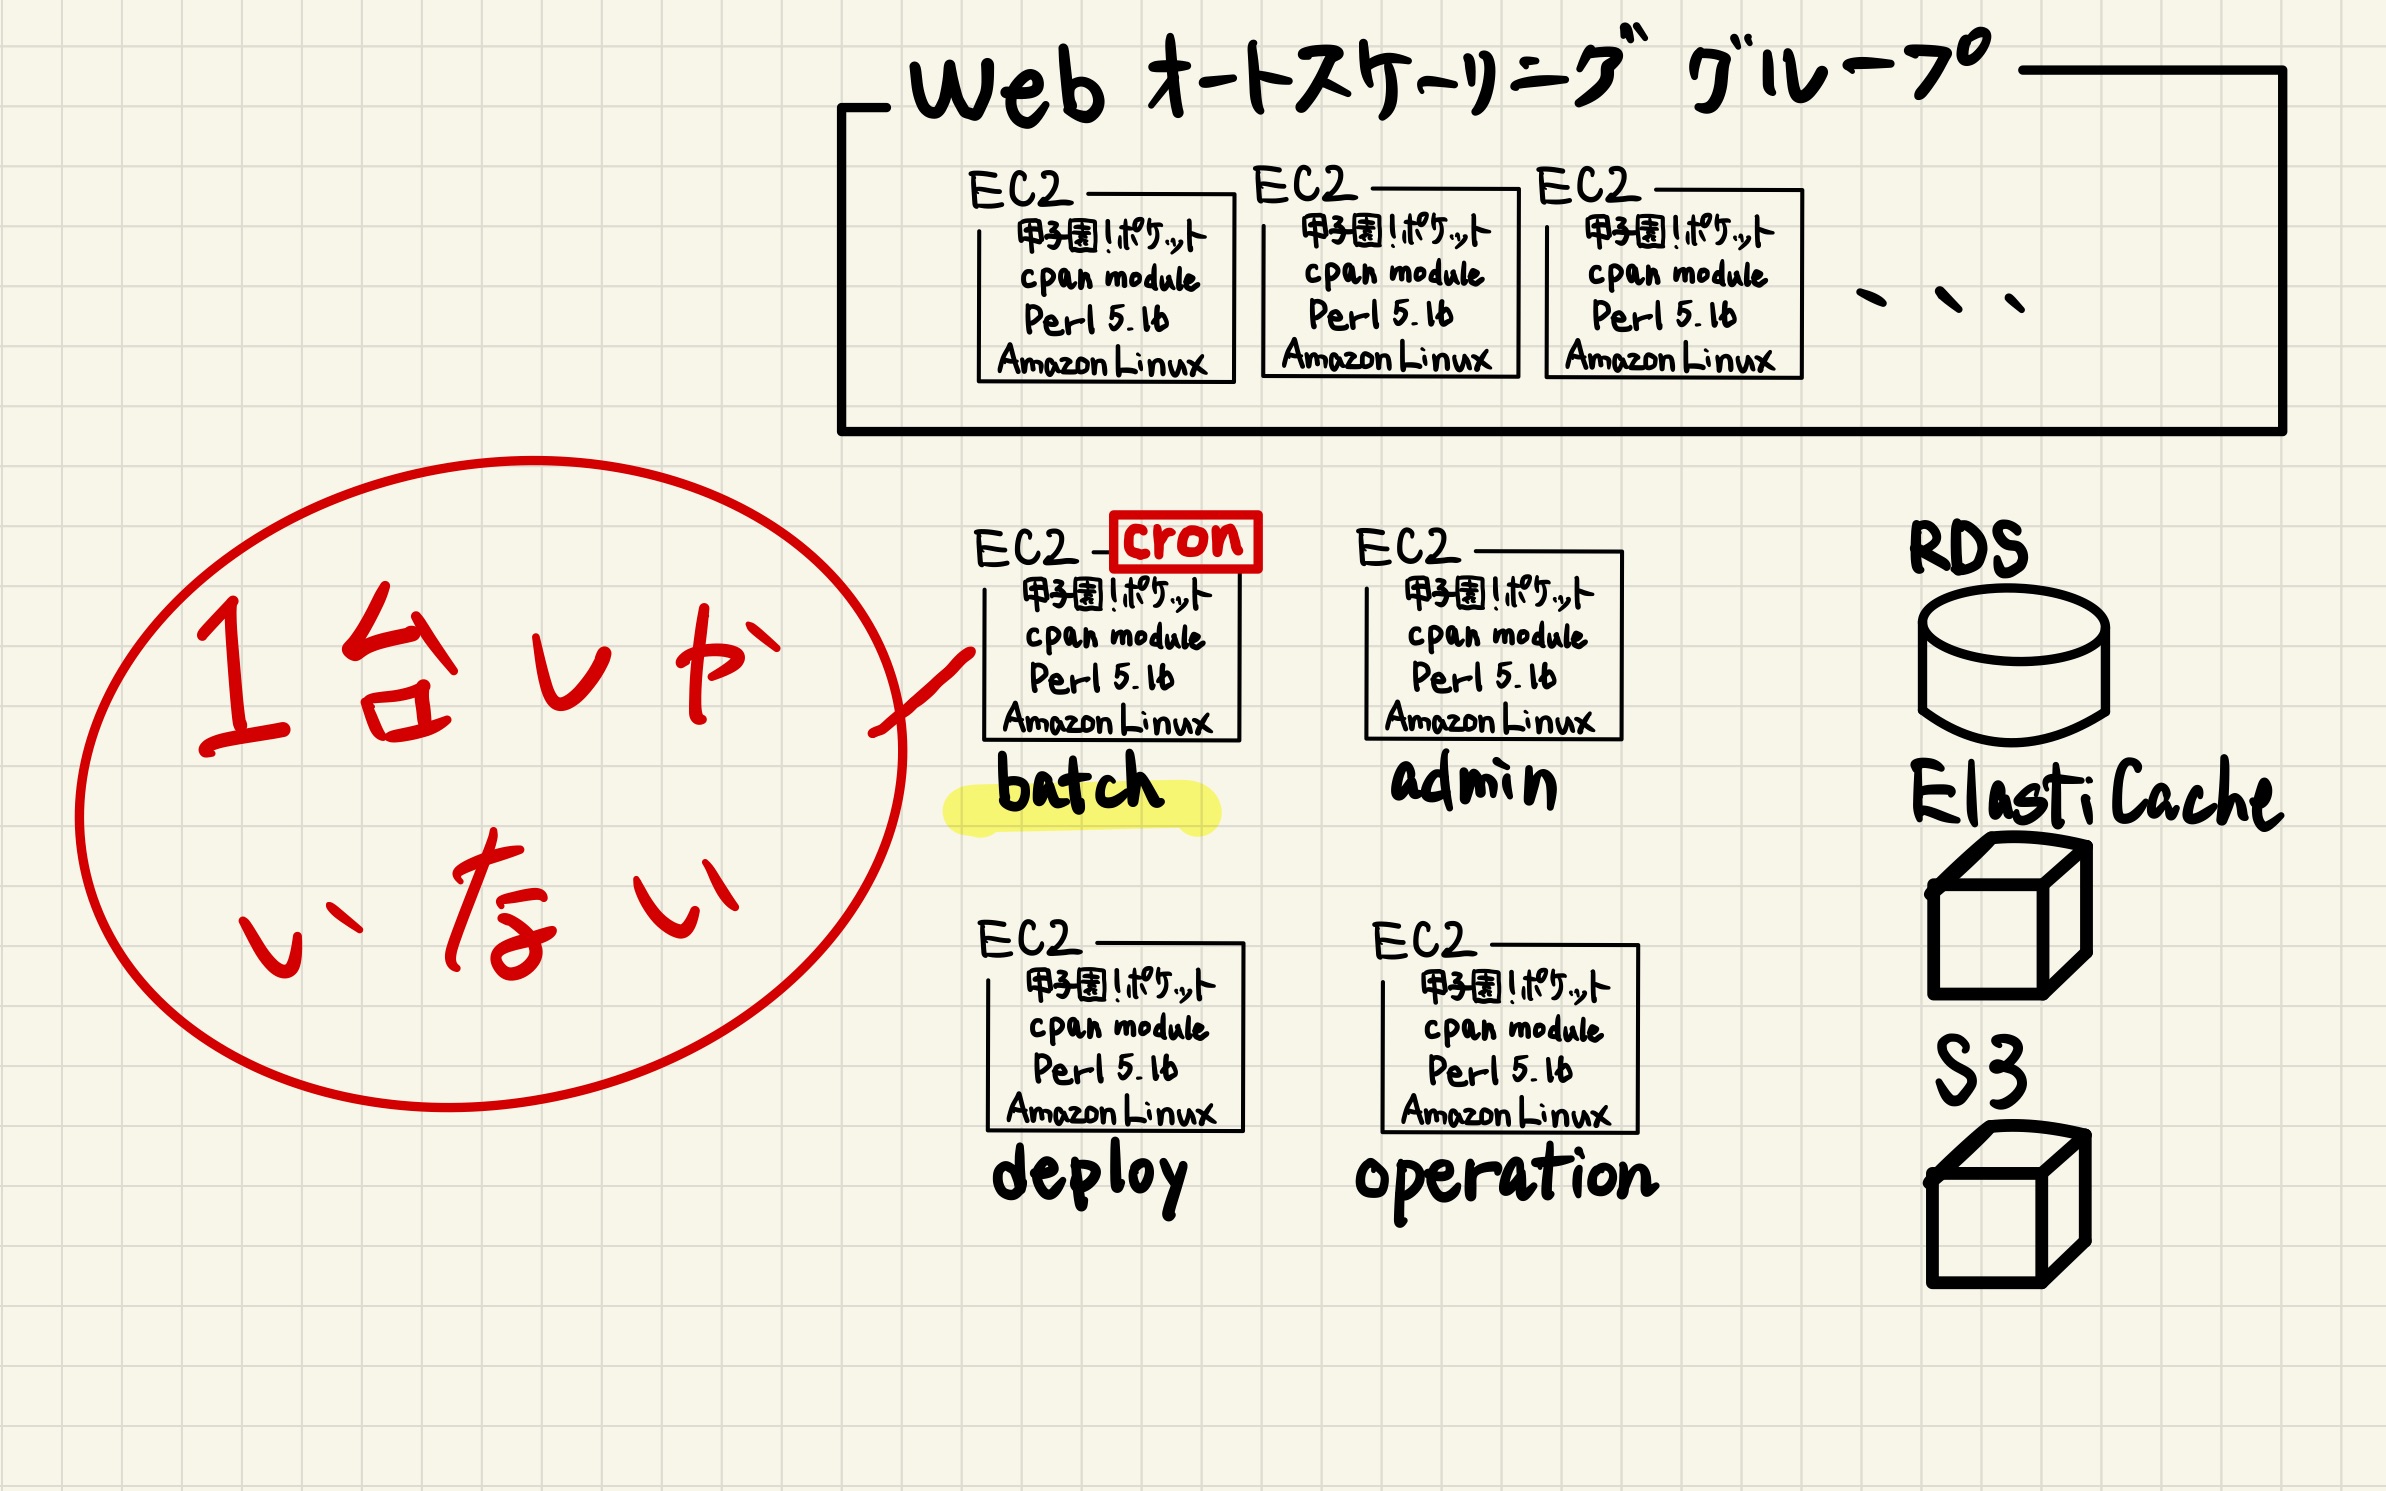 Web オートスケーリング グループ
EC2
甲子園!ポケット
cpan module
Perl 5.16
Amazon Linux
EC2
甲子園!ポケット
cpan module
Perl 5.16
Amazon Linux
EC2
甲子園!ポケット
cpan module
Perl 5.16
Amazon Linux
、、、
1台しか
いない
EC2
cron
甲子園!ポケット
cpan module
Perl 5.16
Amazon Linux
batch
EC2
甲子園!ポケット
cpan module
Perl 5.16
Amazon Linux
admin
RDS
ElastiCache
EC2
甲子園!ポケット
cpan module
Perl 5.16
Amazon Linux
deploy
EC2
甲子園!ポケット
cpan module
Perl 5.16
Amazon Linux
operation
S3